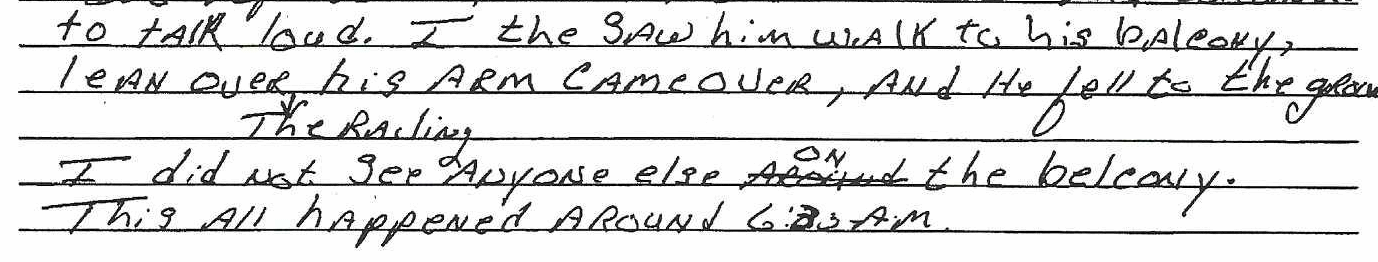 to talk loud. I the saw him walk to his balcony,
lean over, his arm came over, and he fell to the
the Railing
I did not see anyone else on the belcony.
This all happened around A.M.